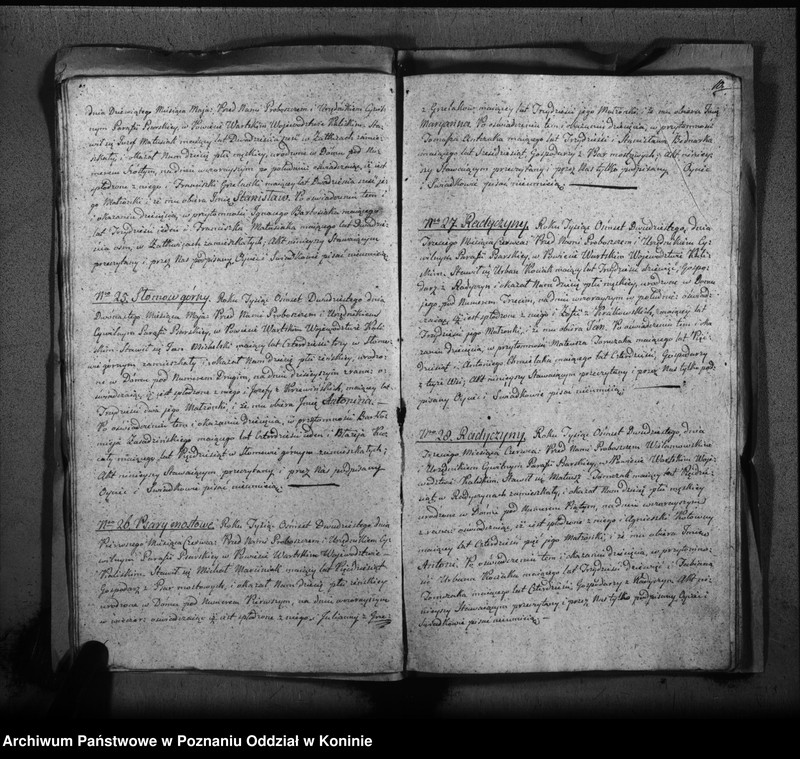 dnia Dziewiątego Miesiąca Maja. Przed Nami Proboszczem i Urzędnikiem Cywil-
nym Parafii Psarskiey, w Powiecie Wartskim Województwie Kaliskim. Sta-
wił się Jozef Matusiak maiący lat Dwadzieścia
szkały, i okazał Nam Dziecię płci męskiey, urodzone w Domu pod Nu-
merem Szostym, na dniu wczorayszym po południu oświadczaiąc, iż iest
spłodzone z niego i Franciszki Grelaski maiącey lat Dwadzieścia sześć je-
go Małżonki i że mu obiera Jmię Stanisław. Po oświadczeniu tem i
okazaniu dziecięcia, w przytomności Jgnacego maiącego
lat Trzydzieści jeden i Franciszka Matusiaka maiącego lat Dwadzie-
ścia osm, w zamieszkałych; Akt ninieyszy Stawaiącym
przeczytany i przez Nas podpisany, Oyciec i Świadkowie pisać nieumieią.
Nro 25. Słomow gorny. Roku Tysiąc Osmset Dwudziestego dnia
Dwunastego Miesiąca Maja. Przed Nami Proboszczem i Urzędnikiem
Cywilnym Parafii Psarskiey, w Powiecie Wartskim Województwie Kali-
skim. Stawił się Jan Michalski maiący lat Czterdzieści trzy w Słomo-
wie górnym zamieszkały; i okazał Nam Dziecię płci żeńskiey, urodzo-
ne w Domu pod Numerem Drugim, na dniu dzisieyszym z rana o-
świadczaiąc, iż iest spłodzone z niego i Jozefy z maiącey lat
Trzydzieści dwa jego Małżonki, i że mu obiera Jmię Antonina. —
Po oświadczeniu tem i okazaniu Dziecięcia, w przytomności Bartło-
mieja Zawadzińskiego maiącego lat Czterdzieści ieden i Błażeja
maiącego lat Pięćdziesiąt w Słomowie górnym zamieszkałych;
Akt ninieyszy Stawaiącym przeczytany, i przez Nas podpisany
Oyciec i Świadkowie pisać nieumieią.
Nro 26. Psary mostowe. Roku Tysiąc Osmset Dwudziestego dnia
Pierwszego Miesiąca Czerwca. Przed Nami Proboszczem i Urzędnikiem Cy-
wilnym Parafii Psarskiey w Powiecie Wartskim Województwie
Kaliskim. Stawił się Michał Marciniak maiący lat Pięćdziesiąt
Gospodarz z Psar mostowych, i okazał Nam dziecię płci żeńskiey
urodzone w Domu pod Numerem Pierwszym, na dniu wczorayszym
w wieczor oświadczaiąc iż iest spłodzone z niego, i Julianny z Gre-
10.
z Grelakow maiącey lat Trzydzieści jego Małżonki, i że mu obiera Jmię
Maryanna. Po oświadczeniu tem i okazaniu dziecięcia, w przytomności
Tomasza Antczaka maiącego lat Trzydzieści i Stanisława Bednarka
maiącego lat Sześćdziesiąt, Gospodarzy z Psar mostowych; Akt niniey-
szy Stawaiącym przeczytany i przez Nas tylko podpisany, Oyciec
i Świadkowie pisać nieumieią.
Nro 27. Radyczyny. Roku Tysiąc Osmset Dwudziestego, dnia
Trzeciego Miesiąca Czerwca. Przed Nami Proboszczem i Urzędnikiem Cy-
wilnym Parafii Psarskiey, w Powiecie Wartskim Województwie Kali-
skim. Stawił się Urban Kosiak maiący lat Trzydzieści dziewięć, Gospo-
darz z Radyczyn i okazał Nam dziecię płci męskiey, urodzone w Domu
jego pod Numerem Trzecim, na dniu wczorayszym w południe oświad-
czaiąc, iż iest spłodzone z niego i Zofii z maiącey lat
Trzydzieści jego Małżonki, i że mu obiera Jan. Po oświadczeniu tem i oka-
zaniu dziecięcia, w przytomności Mateusza Tomczaka maiącego lat Pięć-
dziesiąt i Antoniego Chmielaka maiącego lat Czterdzieści, Gospodarzy
z teyże Wsi; Akt ninieyszy Stawaiącym przeczytany i przez Nas tylko pod-
pisany, Oyciec i Świadkowie pisać nieumieią.
Nro 28. Radyczyny. Roku Tysiąc Osmset Dwudziestego, dnia
Trzeciego Miesiąca Czerwca. Przed Nami Proboszczem
i Urzędnikiem Cywilnym Parafii Psarskiey, w Powiecie Wartskim Woje-
wództwie Kaliskim, Stawił się Mateusz Tomczak maiący lat Pięćdzie-
siąt w Radyczynach zamieszkały, i okazał Nam dziecię płci męskiey
urodzone w Domu pod Numerem Piątym, na dniu wczorayszym
z rana oświadczaiąc, iż iest spłodzone z niego i Agnieszki
maiącey lat Czterdzieści pięć jego Małżonki; i że mu obiera Jmię
Antoni. Po oświadczeniu tem i okazaniu dziecięcia, w przytomno-
ści Urbana Kosiaka maiącego lat Trzydzieści dziewięć i Fabiana
Tomczaka maiącego lat Czterdzieści, Gospodarzy z Radyczyn. Akt ni-
nieyszy Stawaiącym przeczytany i przez Nas tylko podpisany, Oyciec i
Świadkowie pisać nieumieią. —
Archiwum Państwowe w Poznaniu Oddział w Koninie